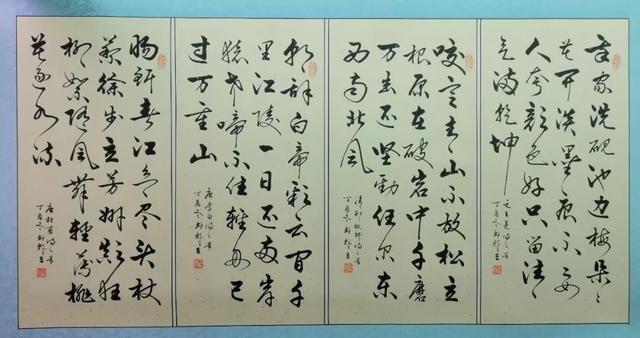 吾家洗砚池边梅朵朵
花开淡墨痕不要
人夸颜色好只留清
气满乾坤
元王冕诗一首
丁酉年
咬定青山不放松立
根原在破岩中千磨
万击还坚劲任尔东
西南北风
清郑板桥诗一首
丁酉年
朝辞白帝彩云间千
里江陵一日还两岸
猿声啼不住轻舟已
过万重山
唐李白诗一首
丁酉年
肠断春江欲尽头杖
藜徐步立芳洲颠狂
柳絮随风舞轻薄桃
花逐水流
唐杜甫诗一首
丁酉年